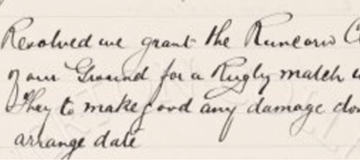 Resolved we grant the Runcorn C
of our Ground for a Rugby match
They to make good any damage do
arrange date